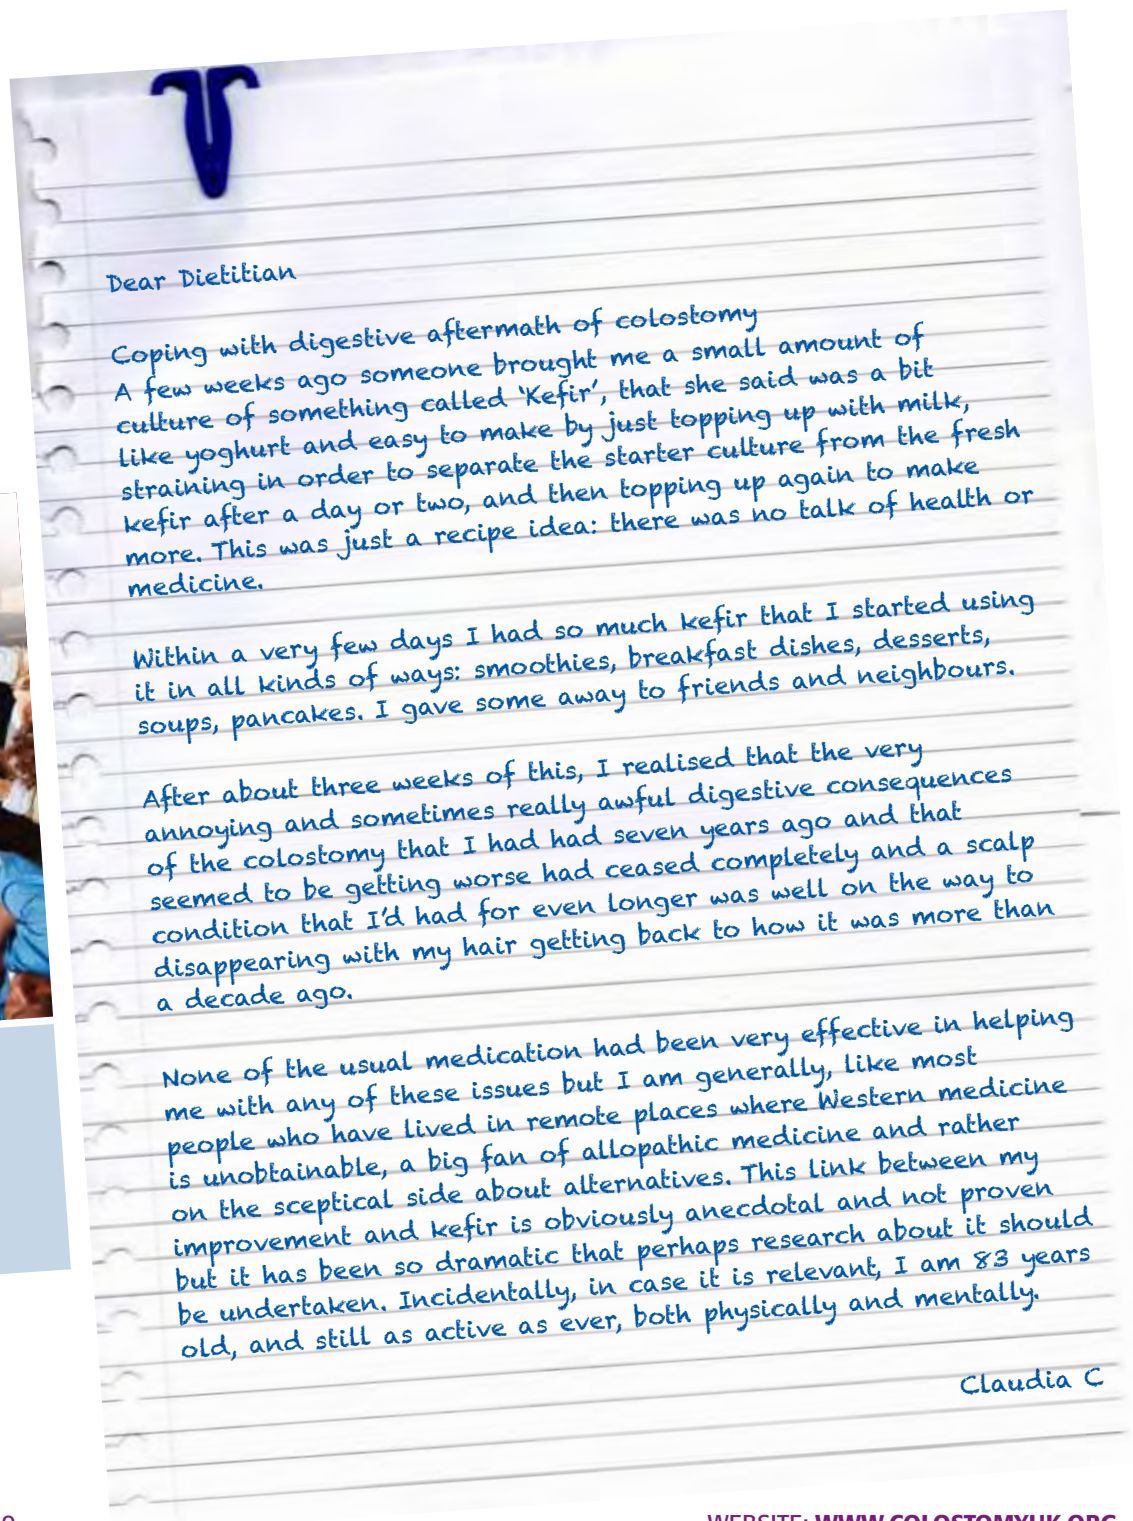 Dear Dietitian
Coping with digestive aftermath of colostomy
A few weeks ago someone brought me a small amount of
culture of something called ‘Kefir’, that she said was a bit
like yoghurt and easy to make by just topping up with milk,
straining in order to separate the starter culture from the fresh
kefir after a day or two, and then topping up again to make
more. This was just a recipe idea: there was no talk of health or
medicine.
Within a very few days I had so much kefir that I started using
it in all kinds of ways: smoothies, breakfast dishes, desserts,
soups, pancakes. I gave some away to friends and neighbours.
After about three weeks of this, I realised that the very
annoying and sometimes really awful digestive consequences
of the colostomy that I had had seven years ago and that
seemed to be getting worse had ceased completely and a scalp
condition that I’d had for even longer was well on the way to
disappearing with my hair getting back to how it was more than
a decade ago.
None of the usual medication had been very effective in helping
me with any of these issues but I am generally, like most
people who have lived in remote places where Western medicine
is unobtainable, a big fan of allopathic medicine and rather
on the sceptical side about alternatives. This link between my
improvement and kefir is obviously anecdotal and not proven
but it has been so dramatic that perhaps research about it should
be undertaken. Incidentally, in case it is relevant, I am 83 years
old, and still as active as ever, both physically and mentally.
Claudia C
WEBSITE: WWW.COLOSTOMYUK.ORG